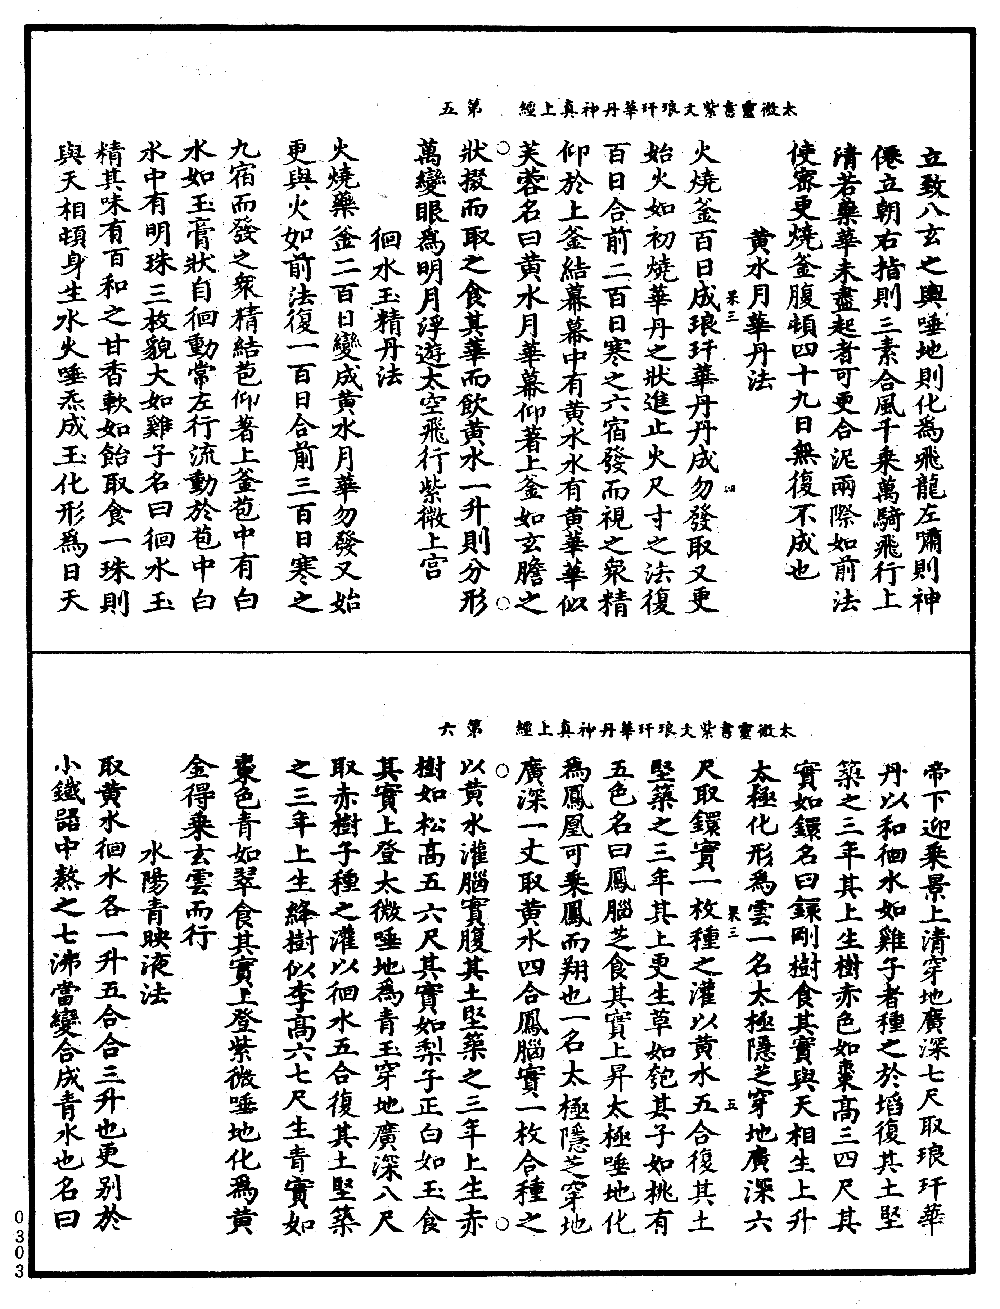 太微靈書紫文琅玕華丹神真上經　第五
立致八玄之輿唾地則化為飛龍左嘯則神
僊立朝右指則三素合風千乘萬騎飛行上
清若藥華未盡起者可更合泥兩際如前法
使密更燒釜腹頓四十九日無復不成也
黃水月華丹法
火燒釜百日成琅玕華丹丹成勿發取又更
始火如初燒華丹之狀進止火尺寸之法復
百日合前二百日寒之六宿發而視之衆精
仰於上釜結幕幕中有黃水水有黃華華似
芙蓉名曰黃水月華幕仰著上釜如玄膽之
狀掇而取之食其華而飲黃水一升則分形
萬變眼為明月浮遊太空飛行紫微上宮
徊水玉精丹法
火燒藥釜二百日變成黃水月華勿發又始
更與火如前法復一百日合前三百日寒之
九宿而發之衆精結苞仰著上釜苞中有白
水如玉膏狀自徊動常左行流動於苞中白
水中有明珠三枚貌大如雞子名曰徊水玉
精其味有百和之甘香軟如飴取食一珠則
與天相頓身生水火唾炁成玉化形為日天
果三
四
太微靈書紫文琅玕華丹神真上經　第六
帝下迎乘景上清穿地廣深七尺取琅玕華
丹以和徊水如雞子者種之於埳復其土堅
築之三年其上生樹赤色如棗高三四尺其
實如鐶名曰鐶剛樹食其實與天相生上升
太極化形為雲一名太極隱芝穿地廣深六
尺取鐶實一枚種之灌以黃水五合復其土
堅築之三年其上更生草如匏其子如桃有
五色名曰鳳腦芝食其實上昇太極唾地化
為鳳凰可乘鳳而翔也一名太極隱芝穿地
廣深一丈取黃水四合鳳腦實一枚合種之
以黃水灌腦實腹其土堅築之三年上生赤
樹如松高五六尺其實如梨子正白如玉食
其實上登太微唾地為青玉穿地廣深八尺
取赤樹子種之灌以徊水五合復其土堅築
之三年上生絳樹似李高六七尺生青實如
棗色青如翠食其實上登紫微唾地化為黃
金得乘玄雲而行
水陽青映液法
取黃水徊水各一升五合合三升也更別於
小鐵器中熬之七沸當變合成青水也名曰
果三
五
0303